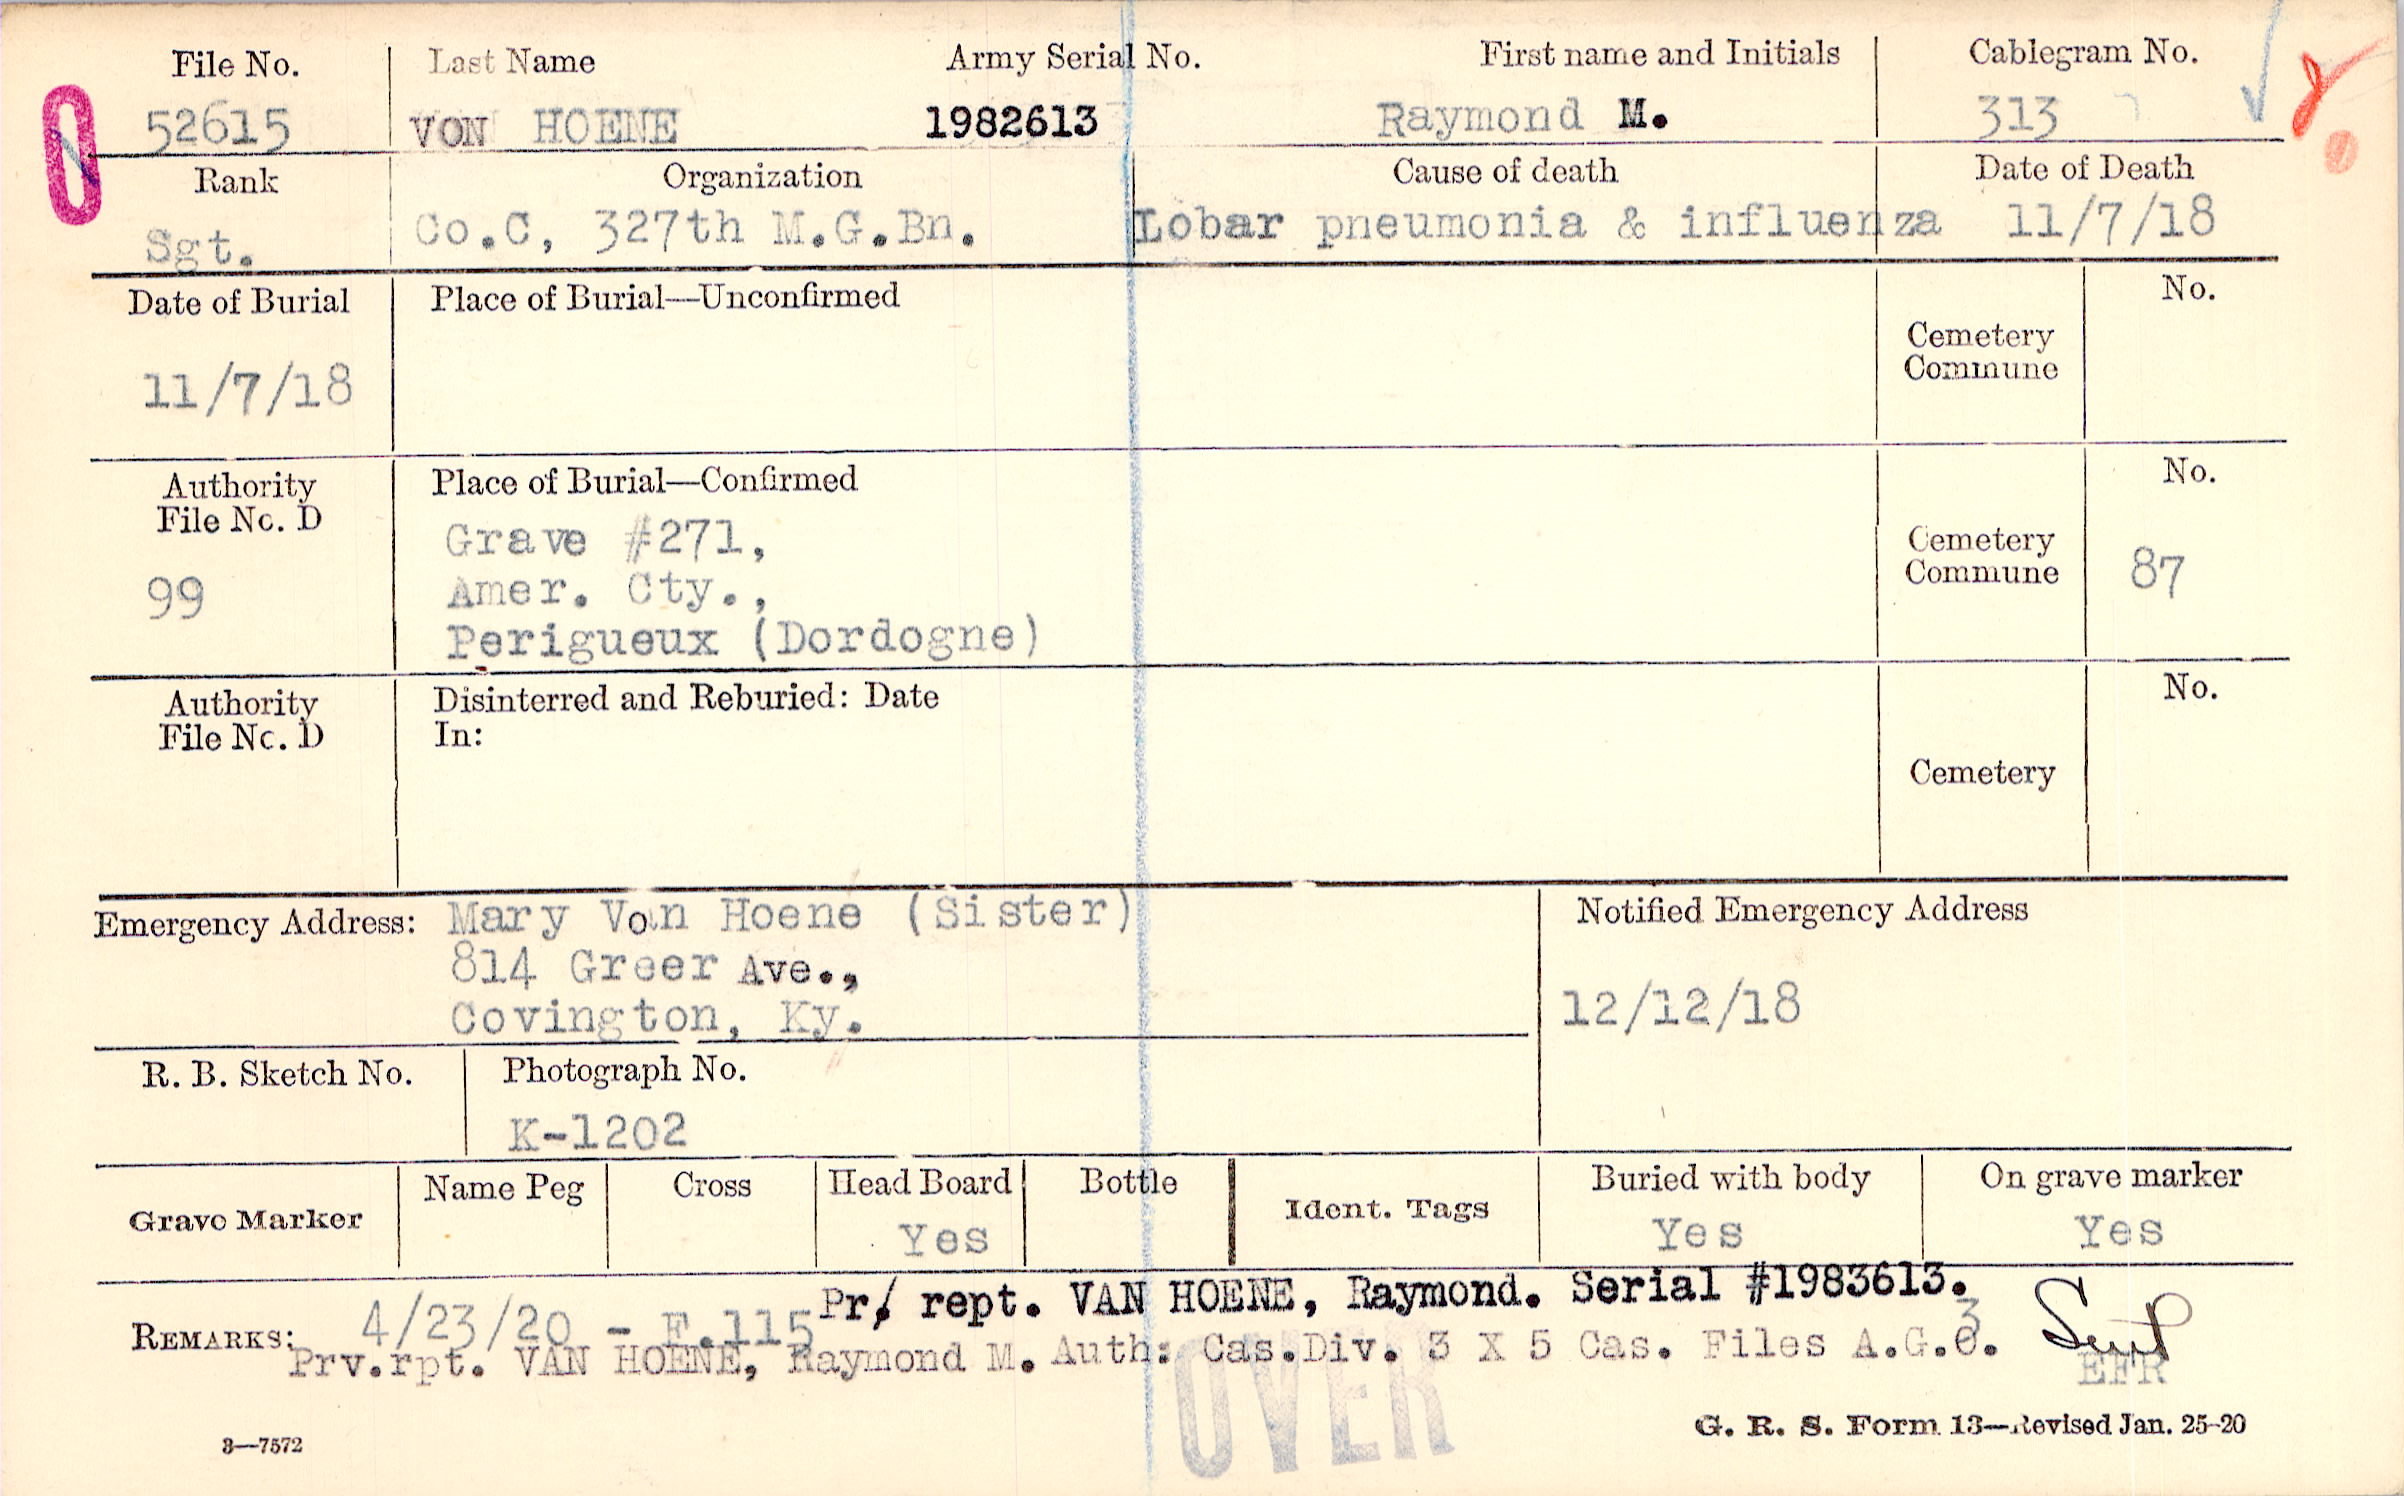 File No. Last Name Army Serial No. First name and Initials Cablegram No.
52615 VON HOENE 1982613 Raymond M. 313
Rank Organization Cause of death Date of Death
Sgt. Co.C, 327th M.G.Bn. Lobar pneumonia & influenza 11/7/18
Date of Burial Place of Burial—Unconfirmed No.
Cemetery
Commune
11/7/18
Authority Place of Burial—Confirmed No.
File No. D
Grave #271,
Cemetery
Commune 87
99 Amer. Cty.,
Perigueux (Dordogne)
Authority Disinterred and Reburied: Date No.
File No. D In:
Cemetery
Emergency Address: Mary Von Hoene (Sister) Notified Emergency Address
814 Greer Ave.,
Covington, Ky. 12/12/18
R. B. Sketch No. Photograph No.
K-1202
Grave Marker Name Peg Cross Head Board Bottle Ident. Tags Buried with body On grave marker
Yes Yes Yes
Pr. rept. VAN HOENE, Raymond. Serial #1983613.
REMARKS: 4/23/20 - F.115 3
Prv.rpt. VAN HOENE, Raymond M. Auth: Cas.Div. 3 X 5 Cas. Files A.G.O.
EFR
OVER
3—7572 G. R. S. Form 13—Revised Jan. 25-20